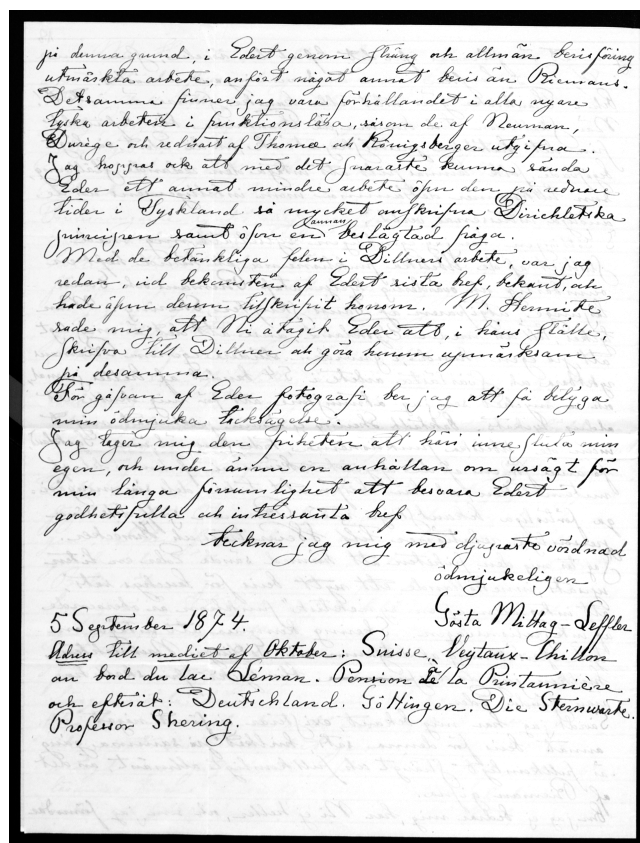 på denna grund, i Edert genom sträng och allmän bevisföring
utmärkta arbete, anfört något annat bevis än Riemans.
Detsamma finner jag vara förhållandet i alla nyare
tyska arbeten i funktionslära, såsom de af Neuman,
Durège och redan af Thomæ och Königsberger utgifna.
Jag hoppas ock att med det snaraste kunna sända
Eder ett annat mindre arbete öfver den på senare
tider i Tyskland så mycket omskrifna Dirichletska
principen samt öfver en annan beslägtad fråga.
Med de betänkliga felen i Dillners arbete, var jag
redan, vid bekomsten af Edert sista bref, bekant, och
hade äfven derom tillskrifvit honom. M. Hermite
sade mig, att Ni åtagit Eder att, i hans ställe,
skrifva till Dillner och göra honom uppmärksam
på desamma.
För gåfvan af Eder fotografi ber jag att få betyga
min ödmjuka tacksägelse.
Jag tager mig den friheten att häri innesluta min
egen, och under ännu en anhållan om ursägt för
min långa försumlighet att besvara Edert
godhetsfulla och intressanta bref
tecknar jag mig med djupaste vördnad
ödmjukeligen
Gösta Mittag-Leffler
5 September 1874.
Adress till mediet af Oktober: Suisse, Veytaux-Chillon
au bord du lac Léman. Pension à la Printannière
och efteråt: Deutschland. Göttingen. Die Sternwarte.
Professor Shering.